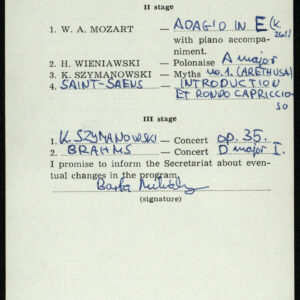 II stage
1. W. A. MOZART — ADAGIO IN E (K. 261)
with piano accompaniment.
2. H. WIENIAWSKI — Polonaise A major
3. K. SZYMANOWSKI — Myths no.1. (ARETHUSA)
4. SAINT-SAENS — INTRODUCTION
ET RONDO CAPRICCIO-
SO
III stage
1. K. SZYMANOWSKI — Concert op. 35.
2. BRAHMS — Concert D major I.
I promise to inform the Secretariat about even-
tual changes in the program.
(signature)